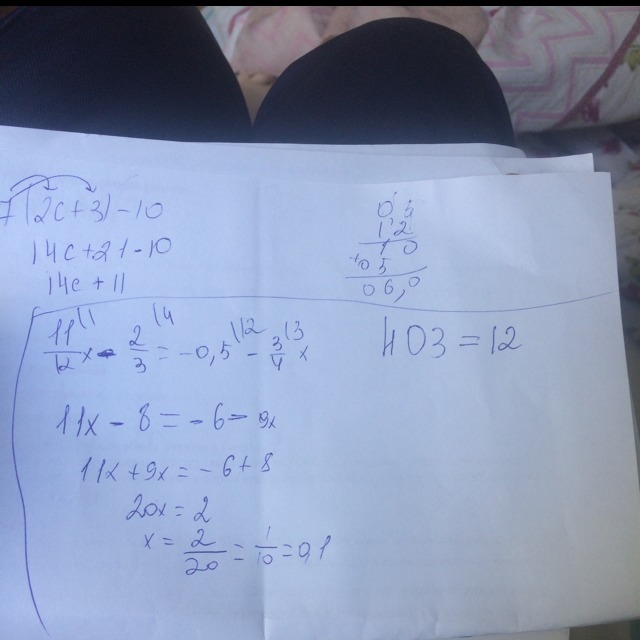 7(2c+3)-10
14c+21-10
14c+11
0,5
1 2
1 0
+0 5
0 6,0
11/12 x - 2/3 = -0,5 - 3/4 x
\1 \4 \12 \3
НОЗ = 12
11x - 8 = -6 - 9x
11x + 9x = -6 + 8
20x = 2
x = 2/20 = 1/10 = 0,1